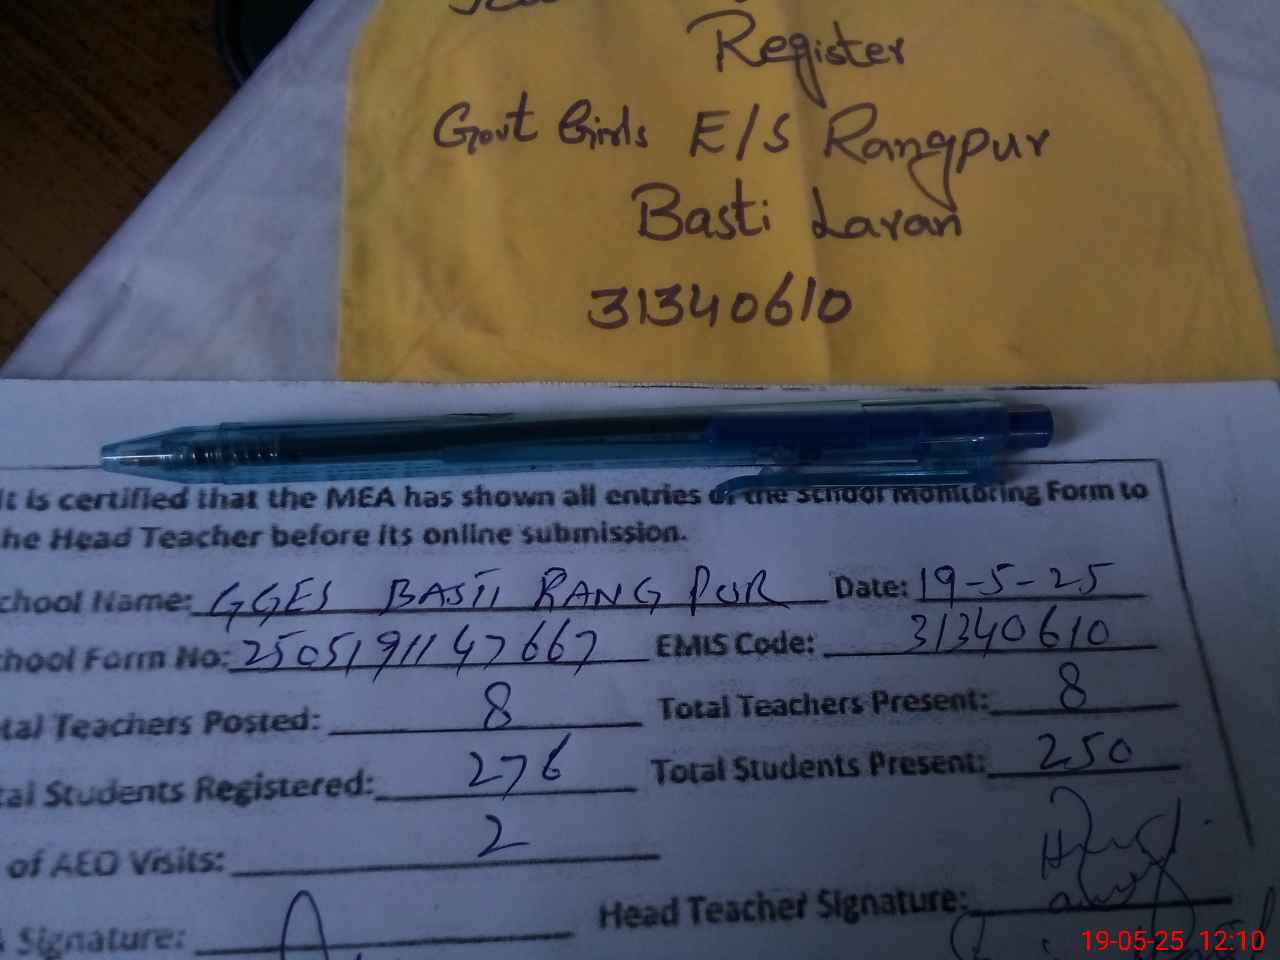 Register
Govt Girls E/S Rangpur
Basti Laran
31340610
It is certified that the MEA has shown all entries of the School Monitoring Form to
he Head Teacher before its online submission.
chool Name: GGES BASTI RANG PUR Date: 19-5-25
hool Form No: 2505191147667 EMIS Code: 31340610
tal Teachers Posted: 8 Total Teachers Present: 8
tal Students Registered: 276 Total Students Present: 250
of AEO Visits: 2
Head Teacher Signature:
Signature:
19-05-25 12:10